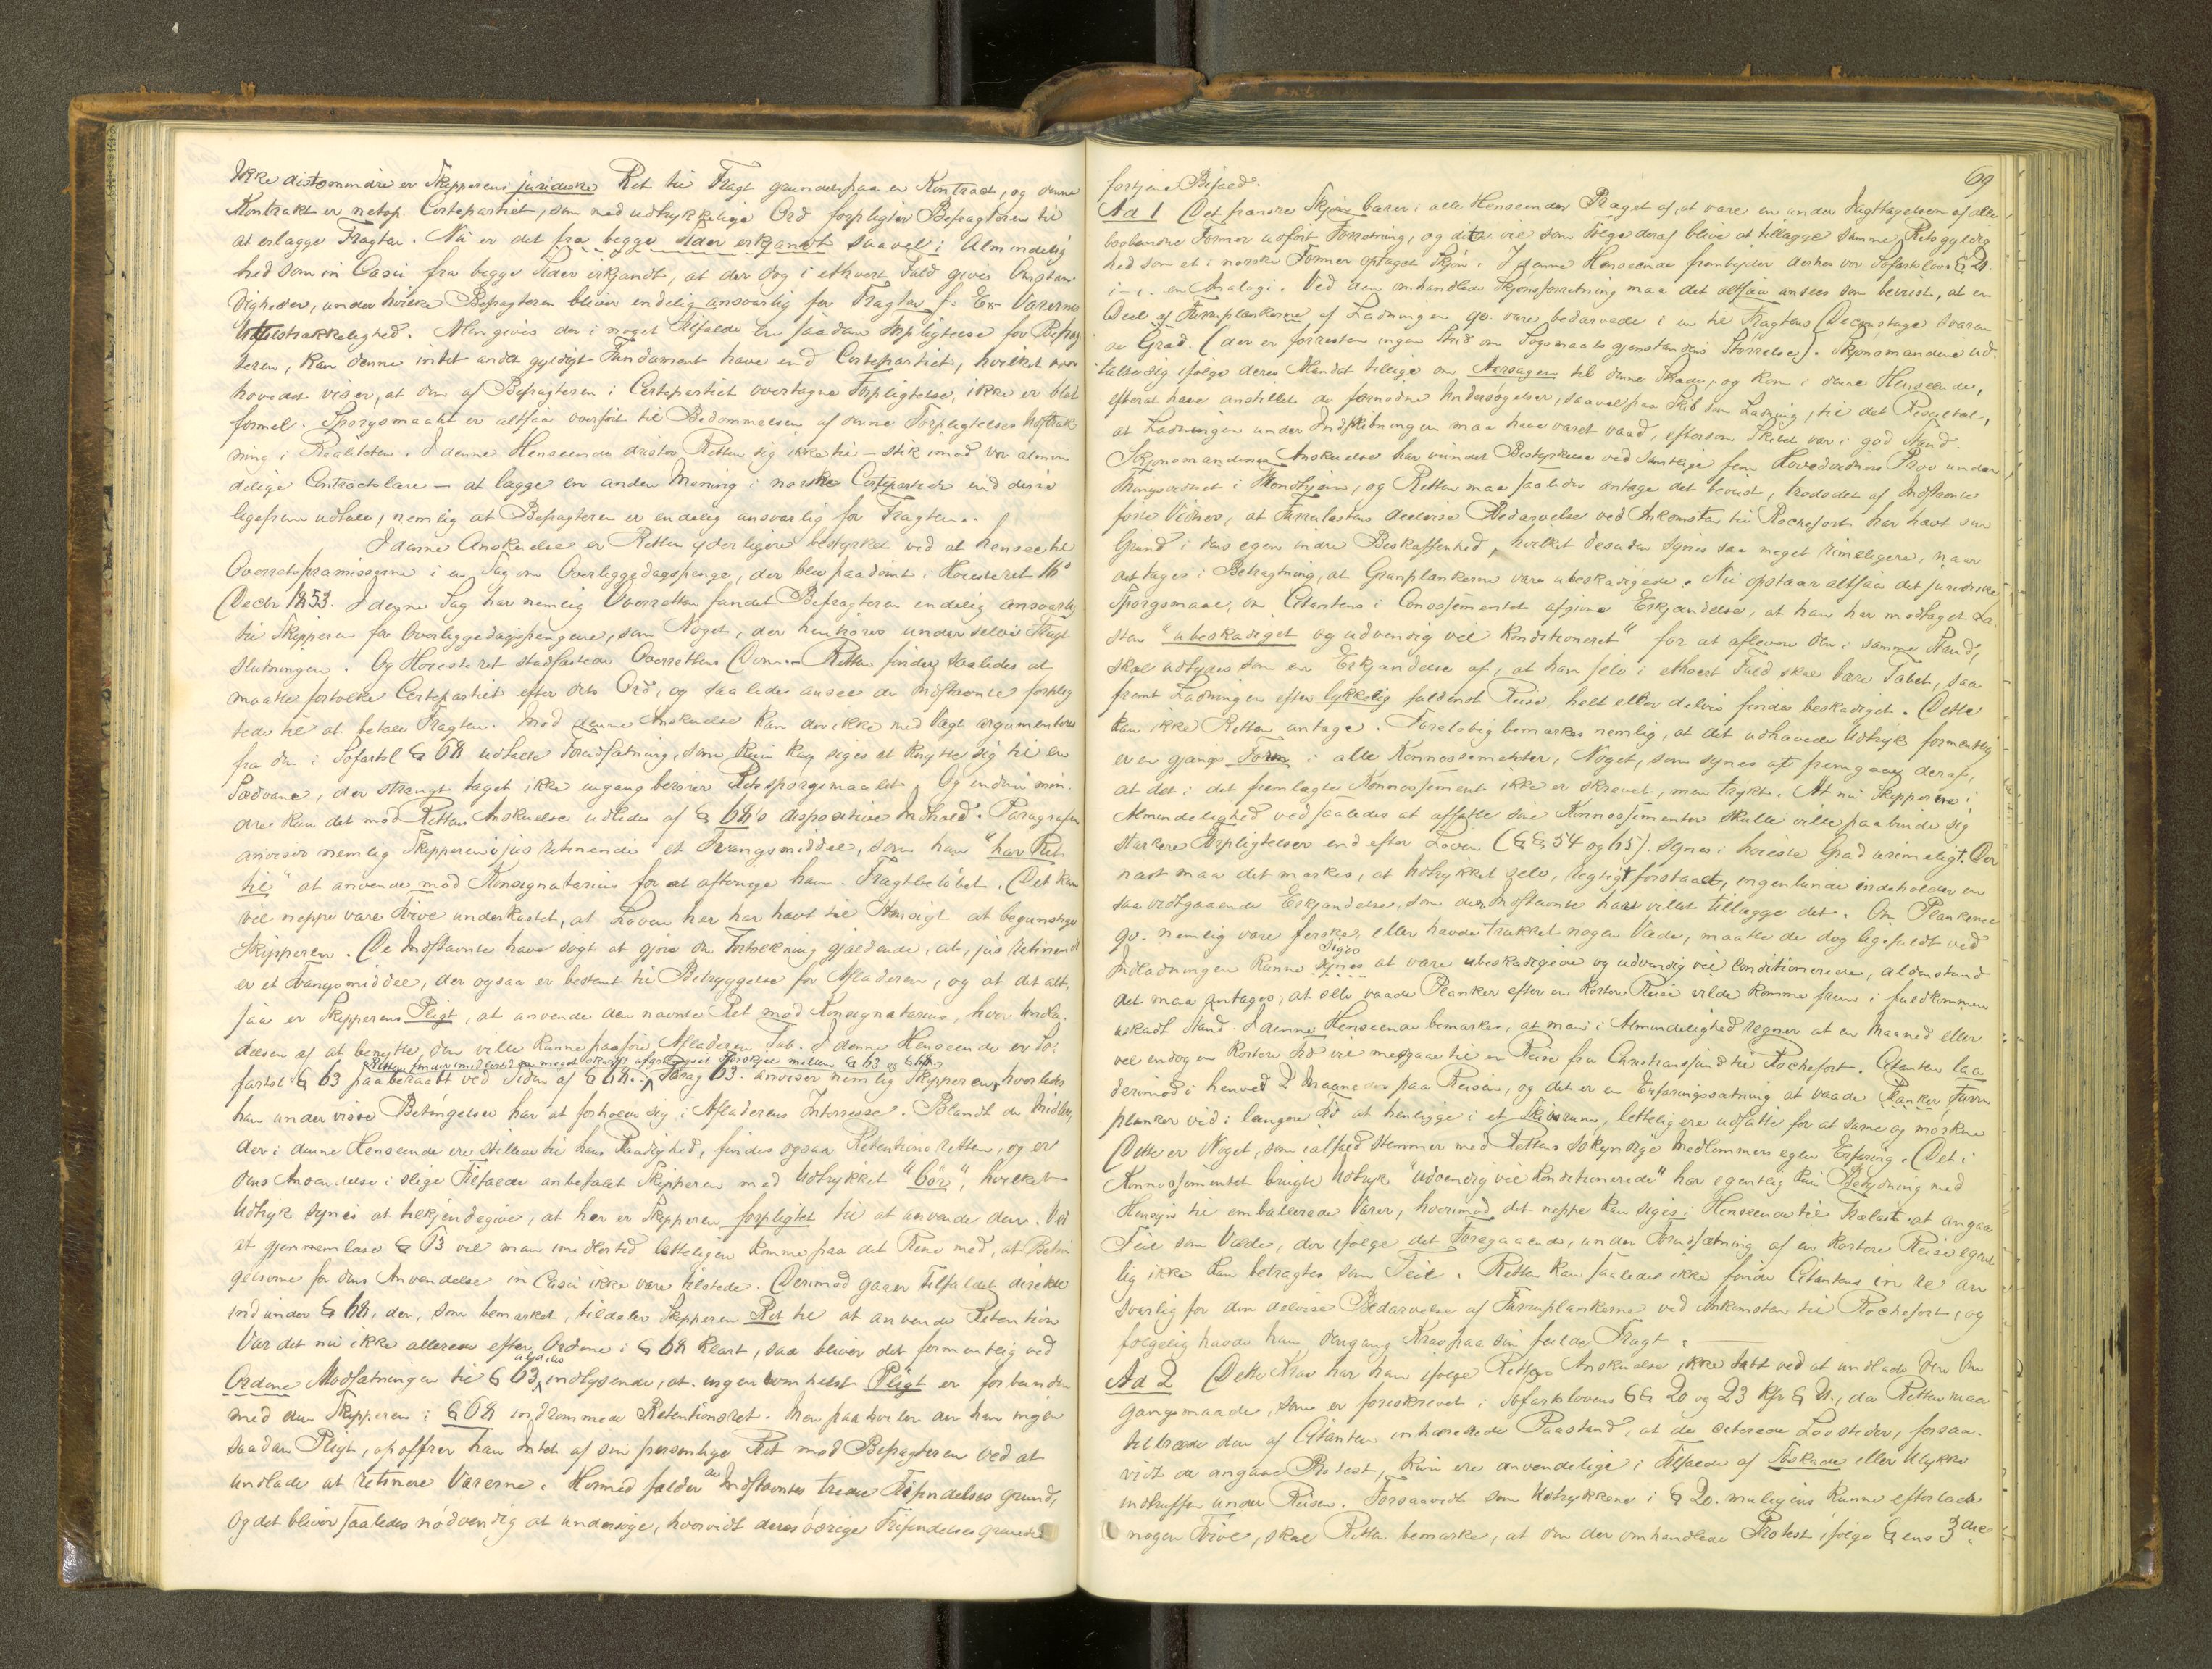 Ikke distomindre er Skipperens juridiske Ret til Fragt grundet paa en Kontract, og denne
Kontrakt er netop Certepartiet, som med udtrykkelige Ord forpligter Befragteren til
at erlægge Fragten. Nu er det fra begge Sider erkjendt saavel i Almindelig
hed som in Casu fra begge Sider erkjendt, at der dog i ethvert Fald gives Omstæn
digheder, under hvilke Befragteren bliver endelig ansvarlig for Fragten f. Ex- Varernes
Utilstrækkelighed. Men gives der i noget Tilfælde en saadan Forpligtelse for Befrag
teren, kan denne intet andet gyldigt Fundament have end Certepartiet, hvilket
hovedet viser, at den af Befragteren i Certepartiet overtagne Forpligtelse, ikke er blot
formel. Spørgsmaalet er altsaa overført til Bedømmelsen af denne Forpligtelses
ning i Realiteten. I denne Henseende drister Retten sig ikke til - stik imod vor almin
delige Contractslære - at lægge en anden Mening i norske Certepartier end disse
ligefrem udtale, nemlig at Befragteren er endelig ansvarlig for Fragten.
I denne Anskuelse er Retten yderligere bestyrket ved at hensee til
Overretspræmisserne i en Sag om Overliggedagspenge, der blev paadømt i Høiesteret 16de
Decbr 1853. I denne Sag har nemlig Overretten fundet Befragteren endelig ansvarlig
til Skipperen for Overliggedagspengene, som Noget, der henhører under selve Fragt
slutningen. Og Høiesteret stadfæstede Overrettens Dom. Retten finder saaledes at
maatte fortolke Certepartiet efter dets Ord, og saaledes ansee de Indstævnte forplig
tede til at betale Fragten. Mod denne Anskuelse kan der ikke med Vægt argumenteres
fra den i Søfartsl § 68 udtalte Forudsætning, som kun kan siges at knytte sig til en
Sædvane, der strængt taget ikke engang berører Retsspørgsmaalet. Og endnu min
dre kan det mod Rettens Anskuelse udledes af § 68's dispositive Indhold. Paragrafen
anviser nemlig Skipperen i jus retinendi et Tvangsmiddel, som han "har Ret
til" at anvende mod Konsignatarius for at aftvinge ham Fragtbeløbet. Det kan
vel neppe være Tvivl underkastet, at Loven her har havt til Hensigt at begunstige
Skipperen. De Indstævnte have søgt at gjøre den Fortolkning gjældende, at jus retinendi
er et Tvangsmiddel, der ogsaa er bestemt til Betryggelse for Afladeren, og at det alt
saa er Skipperens Pligt, at anvende den nævnte Ret mod Konsignatarius, hvor Undla
delsen af at benytte den ville kunne paaføre Afladeren Tab. I denne Henseende er Sø
Retten finder imidlertid en meget skarpt afgrændset Forskjel mellem § 63 og § 68
fartsl § 63 paaberaabt ved Siden af § 68. Parag 63. anviser nemlig Skipperen, hvorledes
han under visse Betingelser har at forholde sig i Afladerens Interesse. Blandt de Midler,
der i denne Henseende ere stillede til hans Raadighed, findes ogsaa Retentionsretten, og er
dens Anvendelse i slige Tilfælde anbefalet Skipperen med Udtrykket "bør", hvilket
Udtryk synes at tilkjendegive, at her er Skipperen forpligtet til at anvende den. Ved
at gjennemlæse § 63 vil man imidlertid letteligen komme paa det Rene med, at Betin
gelserne for dens Anvendelse in Casu ikke vare tilstede. Derimod gaaer Tilfældet direkte
ind under § 68, der, som bemærket, tildeler Skipperen Ret til at anvende Retention
Var det nu ikke allerede efter Ordene i § 68 klart, saa bliver det formentlig ved
Ordene Modsætningen til § 63 indlysende, at ingensomhelst Pligt er forbunden
med den Skipperen i § 68 indrømmede Retentionsret. Men paahviler der ham ingen
saadan Pligt, opoffrer han Intet af sin personlige Ret mod Befragteren ved at
undlade at retinere Varerne. Hermed falder de Indstævntes tredie Frifindelses grund,
og det bliver saaledes nødvendig at undersøge, hvorvidt deres øvrige Frifindelses grunde
69
fortjene Bifald.
Ad 1 Det franske Skjøn bærer i alle Henseender Præget af, at være en under Iagttagelsen af alle
lovbundne Former udført Forretning, og dette vil som Følge deraf blive at tillægge samme Retsgyldig
hed som et i norske Former optaget Skjøn. I denne Henseende frembyder derhos vor Søfartslovs § 21.
i-c. en Analogi. Ved den omhandlede Skjønsforretning maa det altsaa ansees som bevist, at en
Deel af Furruplankerne af Ladningen qv. vare bedærvede i en til Fragtens Decourtage svaren
de Grad. (der er forresten ingen Strid om Søgsmaals gjenstandens Størrelse). Skjønsmændene ud
talte sig ifølge deres Mandat tillige om Aarsagen til denne Skade, og kom i denne Henseende,
efterat have anstillet de fornødne Undersøgelser, saavel paa Skib som Ladning, til det Resultat,
at Ladningen under Indskibningen maa have været vaad, eftersom Skibet var i god Stand.
Skjønsmændenes Anskuelse har vundet Bestyrkelse ved samtlige fem Hovedvidners Prov under
Thingsvidnet i Trondhjem, og Retten maa saaledes antage det bevist, trods det af Indstævnte
førte Vidner, at Furrulastens deelvise Bedærvelse ved Ankomsten til Rochefort har havt sin
Grund i dens egen indre Beskaffenhed, hvilket desuden synes saa meget rimeligere, naar
det tages i Betragtning, at Granplankerne vare ubeskadigede. Nu opstaar altsaa det juridiske
Spørgsmaal, om Citantens i Conossementet afgivne Erkjendelse, at han her modtaget La
sten "ubeskadiget og udvendig vel konditioneret" for at aflevere den i samme Stand,
skal udtydes som en Erkjendelse af, at han selv i ethvert Fald skal bære Tabet, saa
fremt Ladningen efter lykkelig fuldendt Reise, helt eller delvis findes beskadiget. Dette
kan ikke Retten antage. Foreløbig bemærkes nemlig, at det udhævede Udtryk formentlig
er en gjængs Form i alle Konnossementer, Noget, som synes at fremgaae deraf,
at det i det fremlagte Konnossement ikke er skrevet, men trykt. At nu Skipperne i
Almindelighed ved saaledes at affatte sine Konnossementer skulle ville paabinde sig
stærkere Forpligtelser end efter Loven (§§ 54 og 65). synes i høieste Grad urimeligt. Der
næst maa det mærkes, at Udtrykket selv, rigtigt forstaaet, ingenlunde indeholder en
saa vidtgaaende Erkjendelse, som den Indstævnte have villet tillægge det. Om Plankerne
qv. nemlig vare ferske, eller havde trukket nogen Væde, maatte de dog ligefuldt ved
Indladningen kunne siges at være ubeskadigede og udvendig vel conditionerede, aldenstund
det maa antages, at selv vaade Planker efter en kortere Reise vilde komme frem i fuldkommen
uskadt Stand. I denne Henseende bemærkes, at man i Almindelighed regner at en Maaned eller
vel endog en kortere Tid vil medgaae til en Reise fra Christianssund til Rochefort. Citanten laa
derimod i henved 2 Maaneder paa Reisen, og det er en Erfaringssætning at vaade Planker, Furru
planker ved i længere Tid at henligge i et Skibsrum, lettelig ere udsatte for at surne og morkne
Dette er Noget, som ialfald stemmer med Rettens søkyndige Medlemmers egen Erfaring. Det i
Konnossementet brugte Udtryk "udvendig vel konditionerede" har egentlig kun Betydning med
Hensyn til emballerede Varer, hvorimod det neppe kan siges i Henseende til Trælast at angaa
Feil som Væde, der ifølge det Foregaaende, under Forudsætning af en kortere Reise egent
lig ikke kan betragtes som Feil. Retten kan saaledes ikke finde Citanten in re an
svarlig for den deelvise Bedærvelse af Furruplankerne ved Ankomsten til Rochefort, og
følgelig havde han dengang Krav paa sin fulde Fragt.
Ad 2 Dette Krav har han ifølge Rettens Anskuelse ikke tabt ved at undlade den Om
gangsmaade, som er foreskrevet i Søfartslovens §§ 20 og 23 kfr § 21., da Retten maa
tiltræde den af Citanten inhærerede Paastand, at de citerede Lovsteder, forsaa
vidt de angaae Protest, kun ere anvendelige i Tilfælde af Søskade eller Ulykke
indtruffen under Reisen. Forsaavidt som Udtrykkene i § 20. muligens kunne efterlade
nogen Tvivl, skal Retten bemærke, at den der omhandlede Protest ifølge §ens 3die